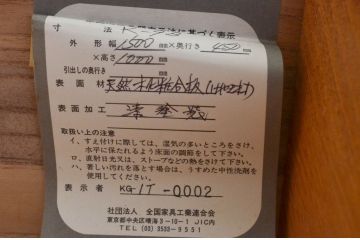 寸 法
外 形 幅 1500 mm×奥行き 450 mm
×高さ 1000 mm
引出しの奥行き
表 面 材 天然木化粧合板
表面加工
取扱い上の注意
イ、すえ付けに際しては、湿気の多いところをさけ、
水平に保たれるよう床面の調節をして下さい。
ロ、直射日光又は、ストーブなどの熱をさけて下さい。
ハ、著しい汚れを落とす場合は、うすめた中性洗剤を
使用してください。
表 示 者 KG-IT-0002
社団法人 全国家具工業連合会
東京都中央区晴海3-10-1 JIC内
TEL (03) 3533-9551